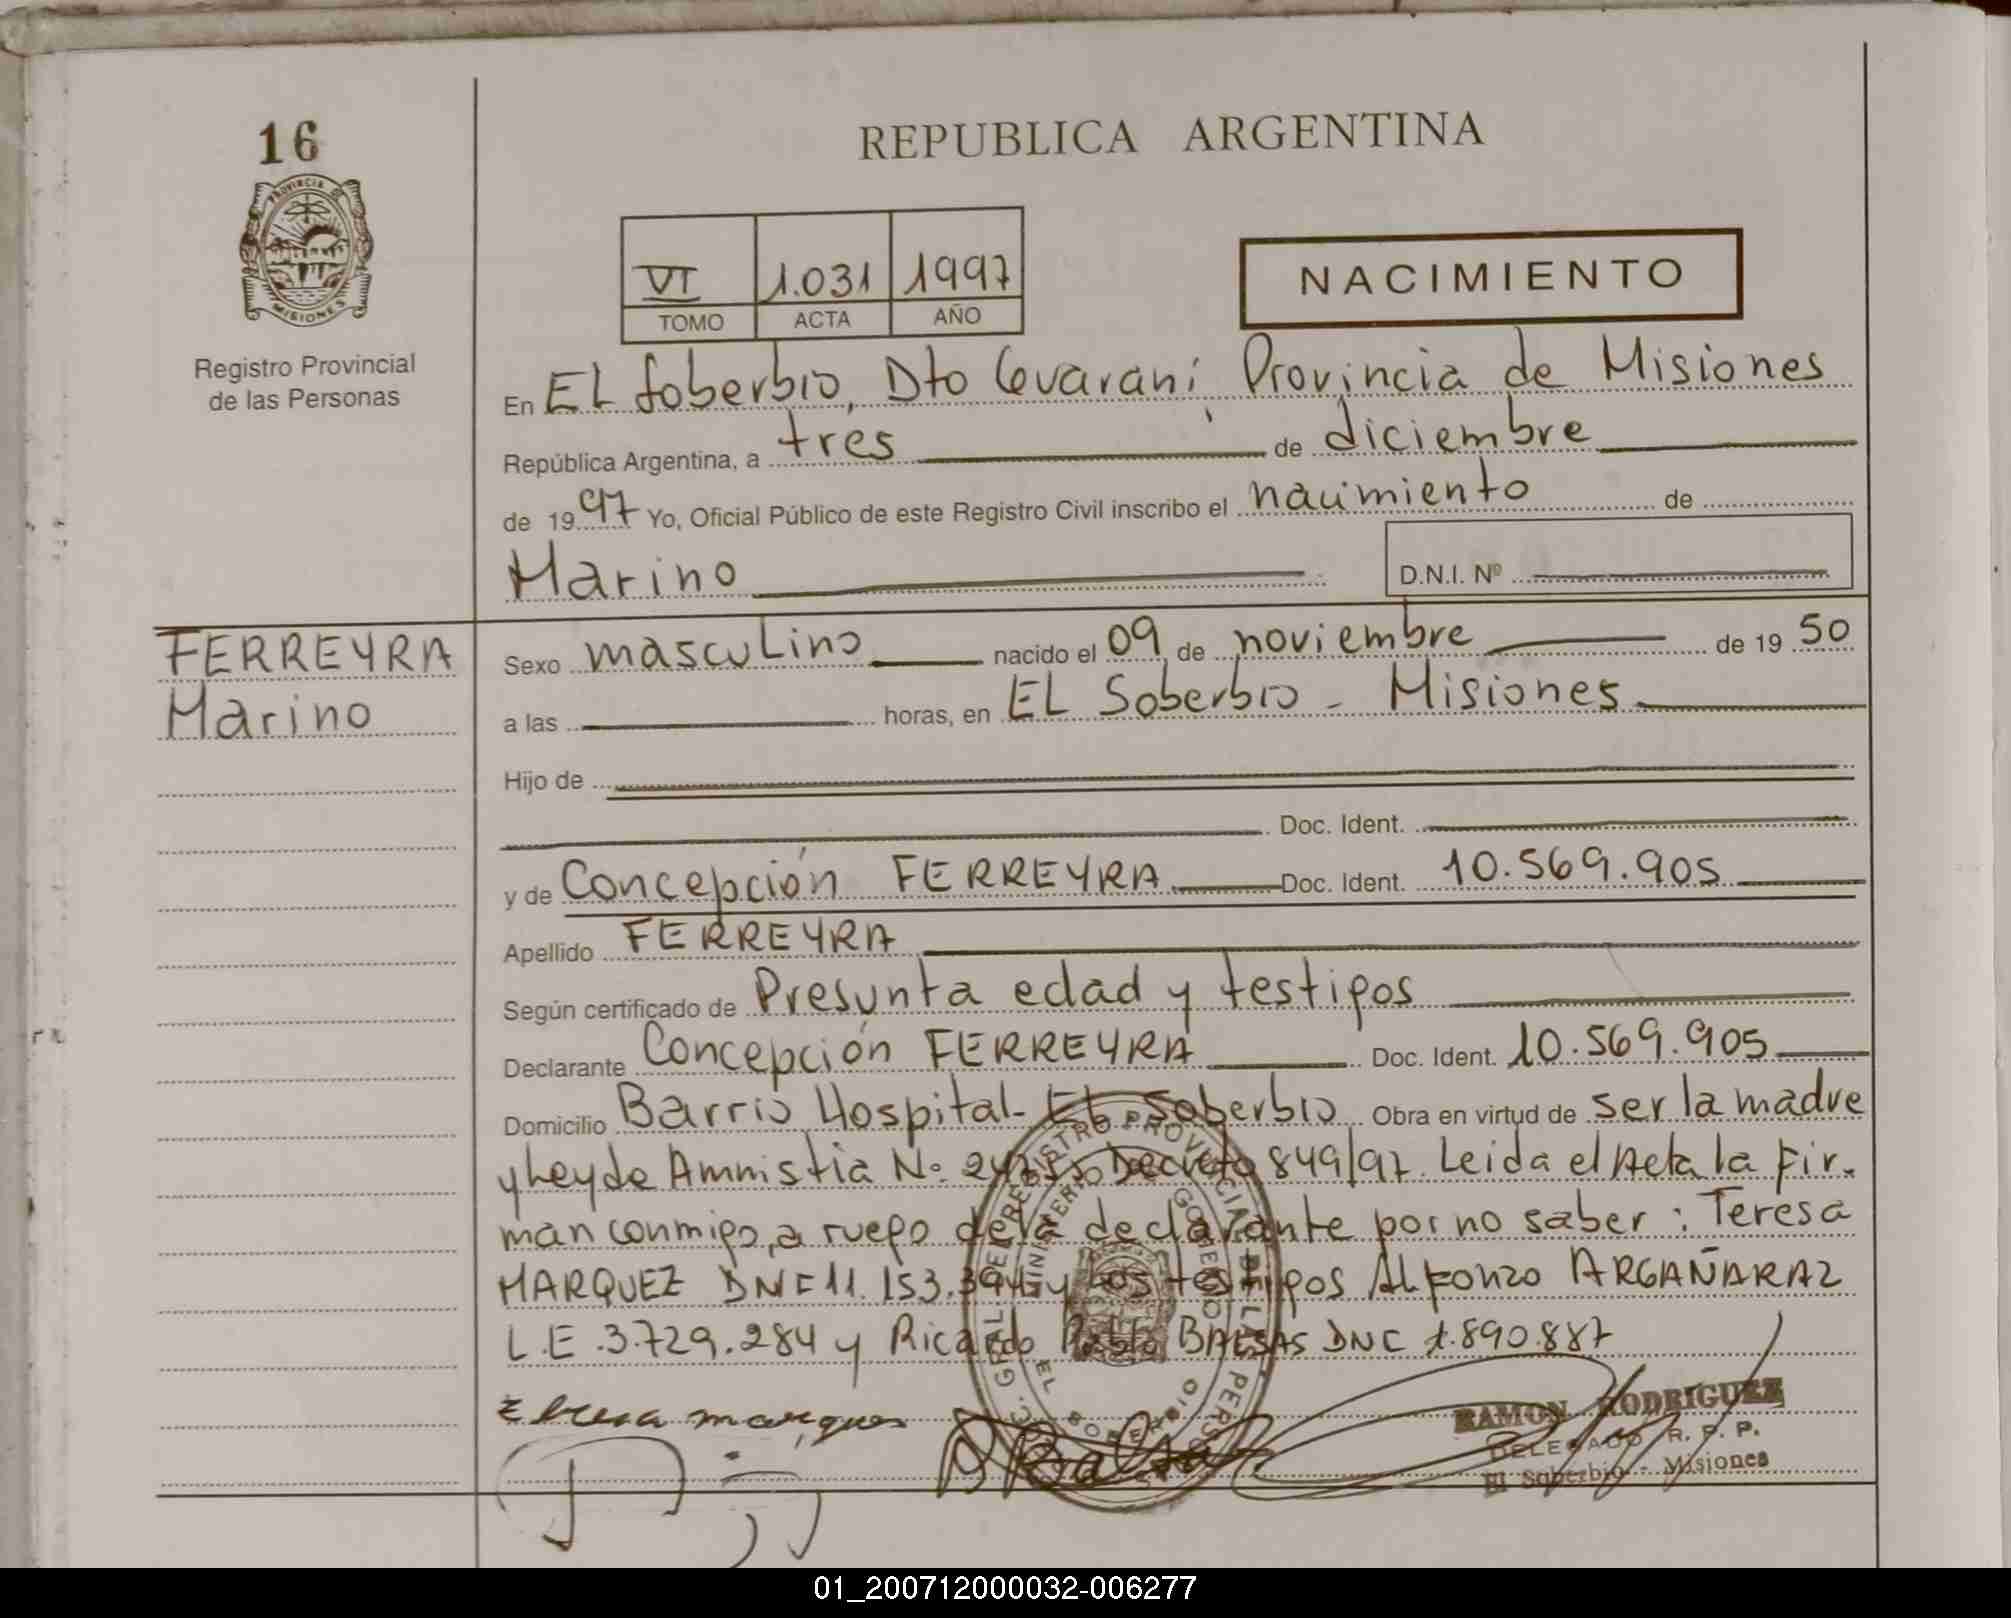 16
REPUBLICA ARGENTINA
PROVINCIA DE
MISIONES
VI 1.031 1997
TOMO ACTA AÑO
NACIMIENTO
Registro Provincial
de las Personas
En EL Soberbio, Dto Guaraní Provincia de Misiones
República Argentina, a tres de diciembre
de 1997 Yo, Oficial Público de este Registro Civil inscribo el nacimiento de
Marino D.N.I. Nº
FERREYRA
Marino
Sexo masculino nacido el 09 de noviembre de 1950
a las horas, en EL Soberbio - Misiones
Hijo de
Doc. Ident.
y de Concepción FERREYRA Doc. Ident. 10.569.905
Apellido FERREYRA
Según certificado de Presunta edad y testigos
Declarante Concepción FERREYRA Doc. Ident. 10.569.905
Domicilio Barrio Hospital - EL Soberbio Obra en virtud de ser la madre
y Ley de Amnistia No. Decreto 849/97. Leida el Acta la fir-
man conmigo, a ruego de la declarante por no saber: Teresa
MARQUEZ DNI 11.153.394 y los testigos Alfonzo ARGAÑARAZ
L.E. 3.729.284 y Ricardo Pablo BALSAS DNI .890.887
RAMON RODRIGUEZ
DELEGADO R. P. P.
El Soberbio - Misiones
01_200712000032-006277